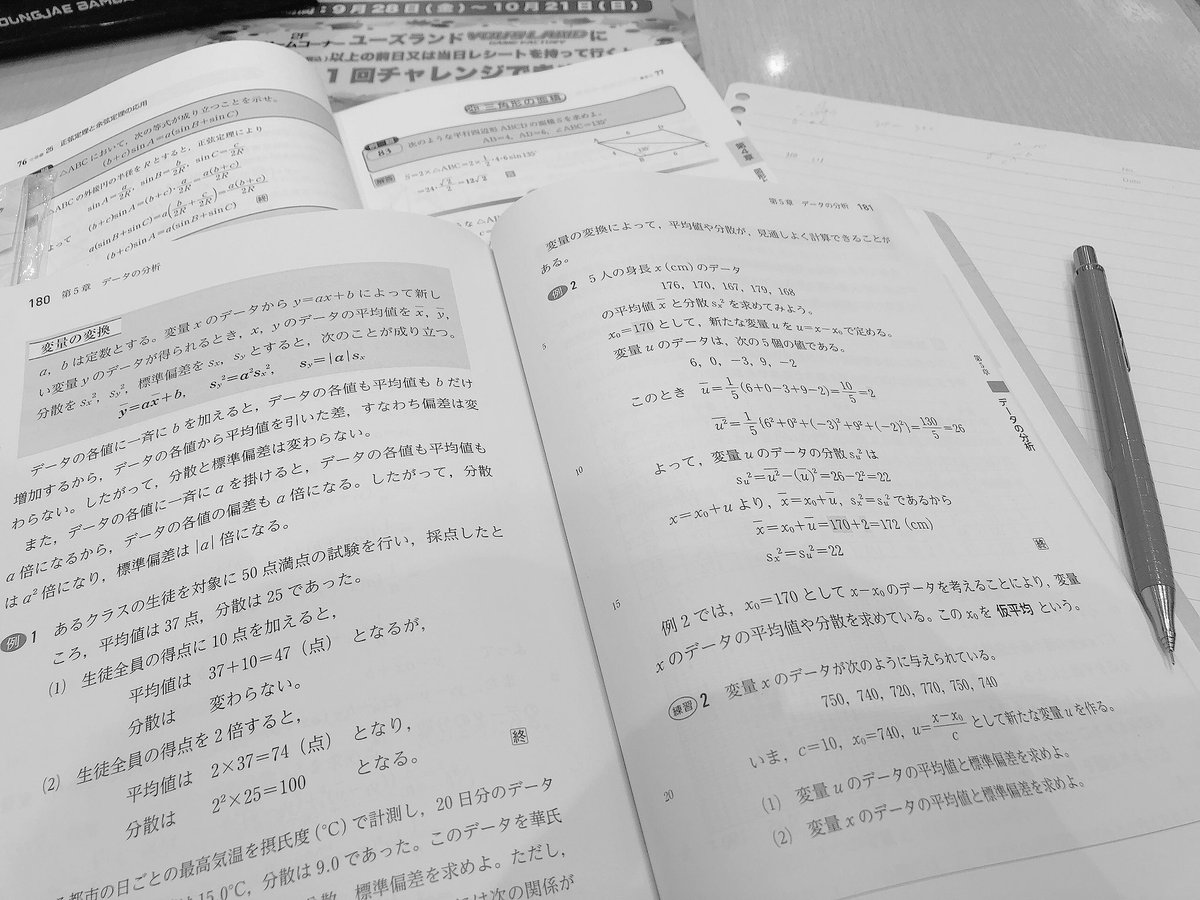 OUNGJAE BAMBA
9月28日(金)～10月21日(日)
2F
ームコーナー ユーズランド YOU'S LAND に
GAME FACTORY
以上の前日又は当日レシートを持って行くと
1回チャレンジで
76 25 正弦定理と余弦定理の応用
△ABCにおいて，次の等式が成り立つことを示せ。
(b+c)sinA=a(sinB+sinC)
ABCの外接円の半径をRとすると，正弦定理により
sinA=a/2R, sinB=b/2R, sinC=c/2R
(b+c)sinA=(b+c)·a/2R=a(b+c)/2R
a(sinB+sinC)=a(b/2R+c/2R)=a(b+c)/2R
よって (b+c)sinA=a(sinB+sinC) 終
77
26 三角形の面積
例題 84 次のような平行四辺形ABCDの面積Sを求めよ。
AB=4，AD=6，∠ABC=135°
解答 S=2×△ABC=2×1/2·4·6sin135°
=24·√2/2=12√2
第4章
180 第5章 データの分析
変量の変換
a，bは定数とする。変量xのデータからy=ax+bによって新し
い変量yのデータが得られるとき，x，yのデータの平均値をx̄，ȳ，
分散をsx²，sy²，標準偏差をsx，syとすると，次のことが成り立つ。
ȳ=ax̄+b， sy²=a²sx²， sy=|a|sx
データの各値に一斉にbを加えると，データの各値も平均値もbだけ
増加するから，データの各値から平均値を引いた差，すなわち偏差は変
わらない。したがって，分散と標準偏差は変わらない。
また，データの各値に一斉にaを掛けると，データの各値も平均値も
a倍になるから，データの各値の偏差もa倍になる。したがって，分散
はa²倍になり，標準偏差は|a|倍になる。
例 1 あるクラスの生徒を対象に50点満点の試験を行い，採点したと
ころ，平均値は37点，分散は25であった。
(1) 生徒全員の得点に10点を加えると，
平均値は 37+10=47（点） となるが，
分散は 変わらない。
(2) 生徒全員の得点を2倍すると，
平均値は 2×37=74（点） となり，
分散は 2²×25=100 となる。 終
都市の日ごとの最高気温を摂氏度(℃)で計測し，20日分のデータ
15.0℃，分散は9.0であった。このデータを華氏
標準偏差を求めよ。ただし，
は次の関係が
第5章 データの分析 181
変量の変換によって，平均値や分散が，見通しよく計算できることが
ある。
例 2 5人の身長x(cm)のデータ
176，170，167，179，168
の平均値x̄と分散sx²を求めてみよう。
x₀=170として，新たな変量uをu=x−x₀で定める。
5
変量uのデータは，次の5個の値である。
6，0，−3，9，−2
このとき ū=1/5(6+0−3+9−2)=10/5=2
u²‾=1/5{6²+0²+(−3)²+9²+(−2)²}=130/5=26
10
よって，変量uのデータの分散su²は
su²=u²‾−(ū)²=26−2²=22
x=x₀+uより，x̄=x₀+ū，sx²=su²であるから
x̄=x₀+ū=170+2=172 (cm)
sx²=su²=22 終
15
例2では，x₀=170としてx−x₀のデータを考えることにより，変量
xのデータの平均値や分散を求めている。このx₀を 仮平均 という。
練習 2 変量xのデータが次のように与えられている。
750，740，720，770，750，740
いま，c=10，x₀=740，u=(x−x₀)/c として新たな変量uを作る。
20
(1) 変量uのデータの平均値と標準偏差を求めよ。
(2) 変量xのデータの平均値と標準偏差を求めよ。
第5章
データの分析